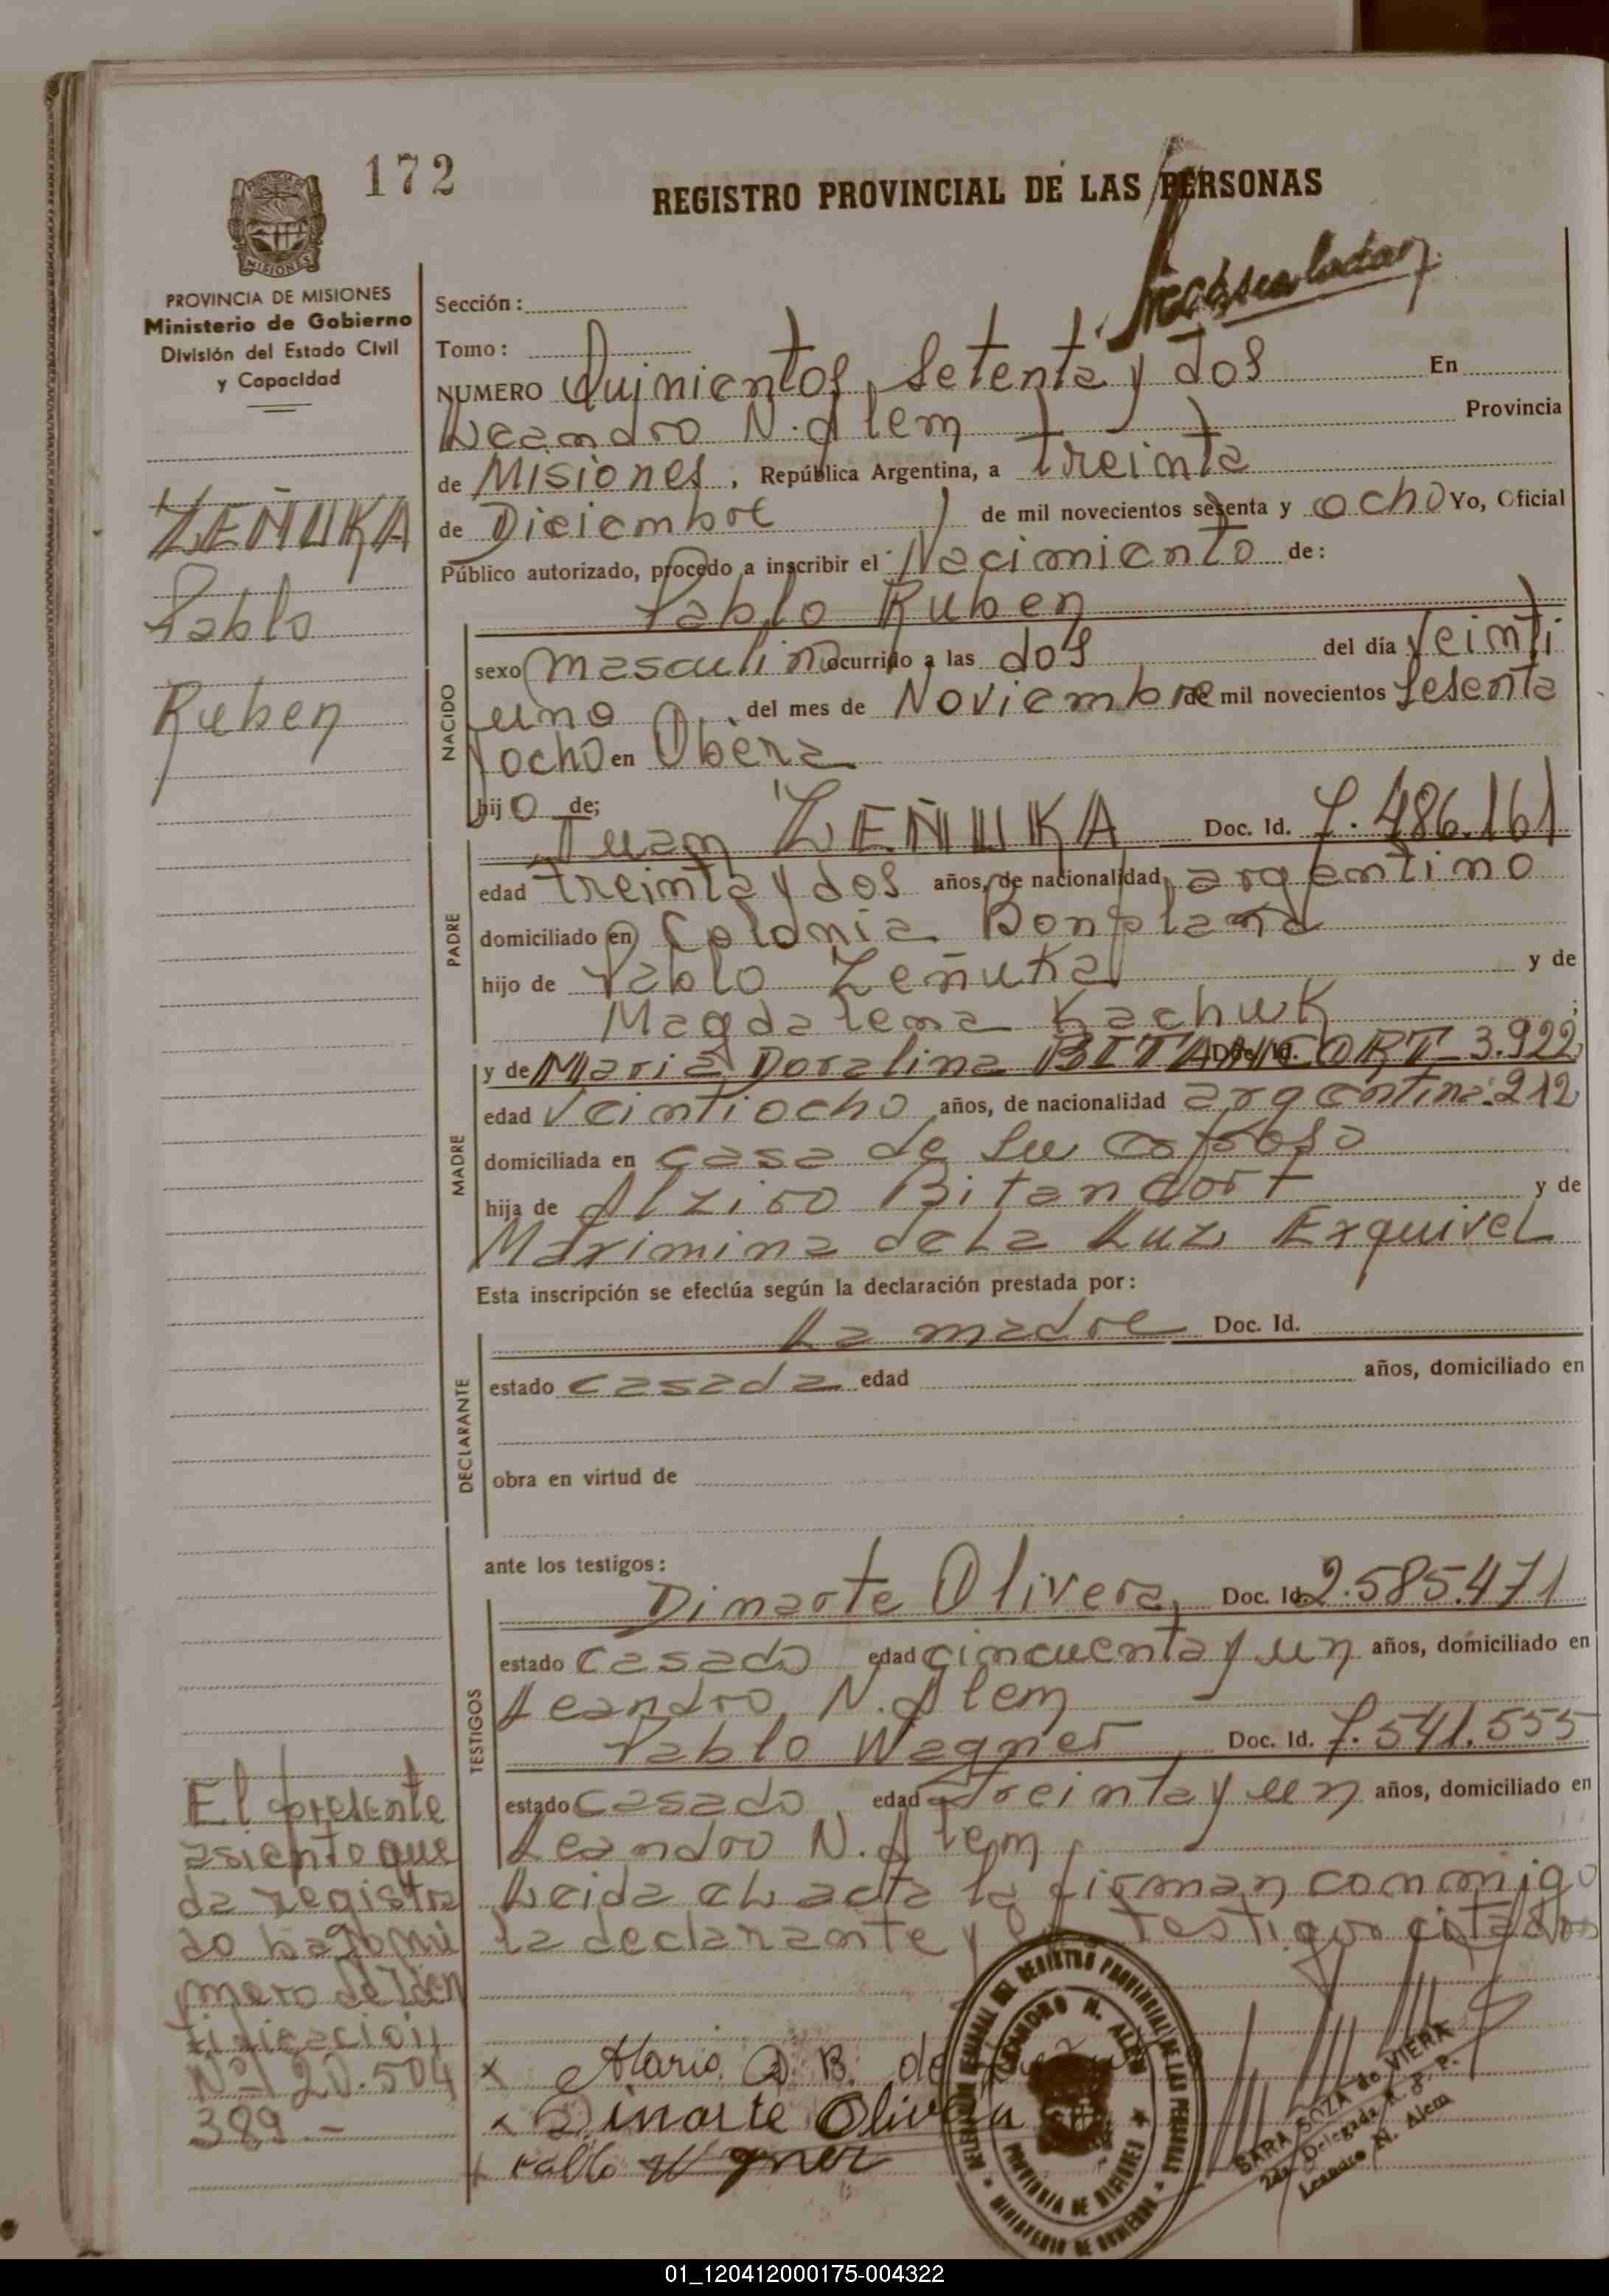 172
REGISTRO PROVINCIAL DE LAS PERSONAS
MISIONES
PROVINCIA DE MISIONES
Ministerio de Gobierno
División del Estado Civil
y Capacidad
Sección:
Tomo:
NUMERO Quinientos Setenta y dos En
Leandro N. Alem Provincia
de Misiones, República Argentina, a treinta
de Diciembre de mil novecientos sesenta y ocho Yo, Oficial
Público autorizado, procedo a inscribir el Nacimiento de:
ZEÑUKA
Pablo
Ruben
NACIDO
Pablo Ruben
sexo masculino ocurrido a las dos del día veinti
uno del mes de Noviembre de mil novecientos sesenta
y ocho en Obera
hijo de;
PADRE
Juan ZEÑUKA Doc. Id. 7.486.161
edad treinta y dos años, de nacionalidad argentino
domiciliado en Colonia Bonpland
hijo de Pablo Zeñuka y de
Magdalena Kachuk;
MADRE
y de Maria Doralina Doc. Id. 3.922
edad veintiocho años, de nacionalidad argentina. 212
domiciliada en casa de su esposo
hija de Alziro Bitancort y de
Maximina de La Luz Exquivel
Esta inscripción se efectúa según la declaración prestada por:
DECLARANTE
La madre Doc. Id.
estado casada edad años, domiciliado en
obra en virtud de
ante los testigos:
TESTIGOS
Dinarte Olivera, Doc. Id. 2.585.471
estado casado edad cincuenta y un años, domiciliado en
Leandro N. Alem
Pablo Wagner, Doc. Id. 7.541.555
estado casado, edad treinta y un años, domiciliado en
Leandro N. Alem
Leida el acta la firman conmigo
la declarante y testigos citados
El presente
asiento que
da registra
do bajo nú
mero de Iden
tificación
Nº 120.504
389.-
x Maria D. B. de
x Dinarte Olivera
x Pablo Wagner
DEL REGISTRO PROVINCIAL DE LAS PERSONAS
LEANDRO N. ALEM
PROVINCIA DE MISIONES
MINISTERIO DE GOBIERNO
SARA SOZA de VIERA
2da. Delegada R. P. P.
Leandro N. Alem
01_120412000175-004322